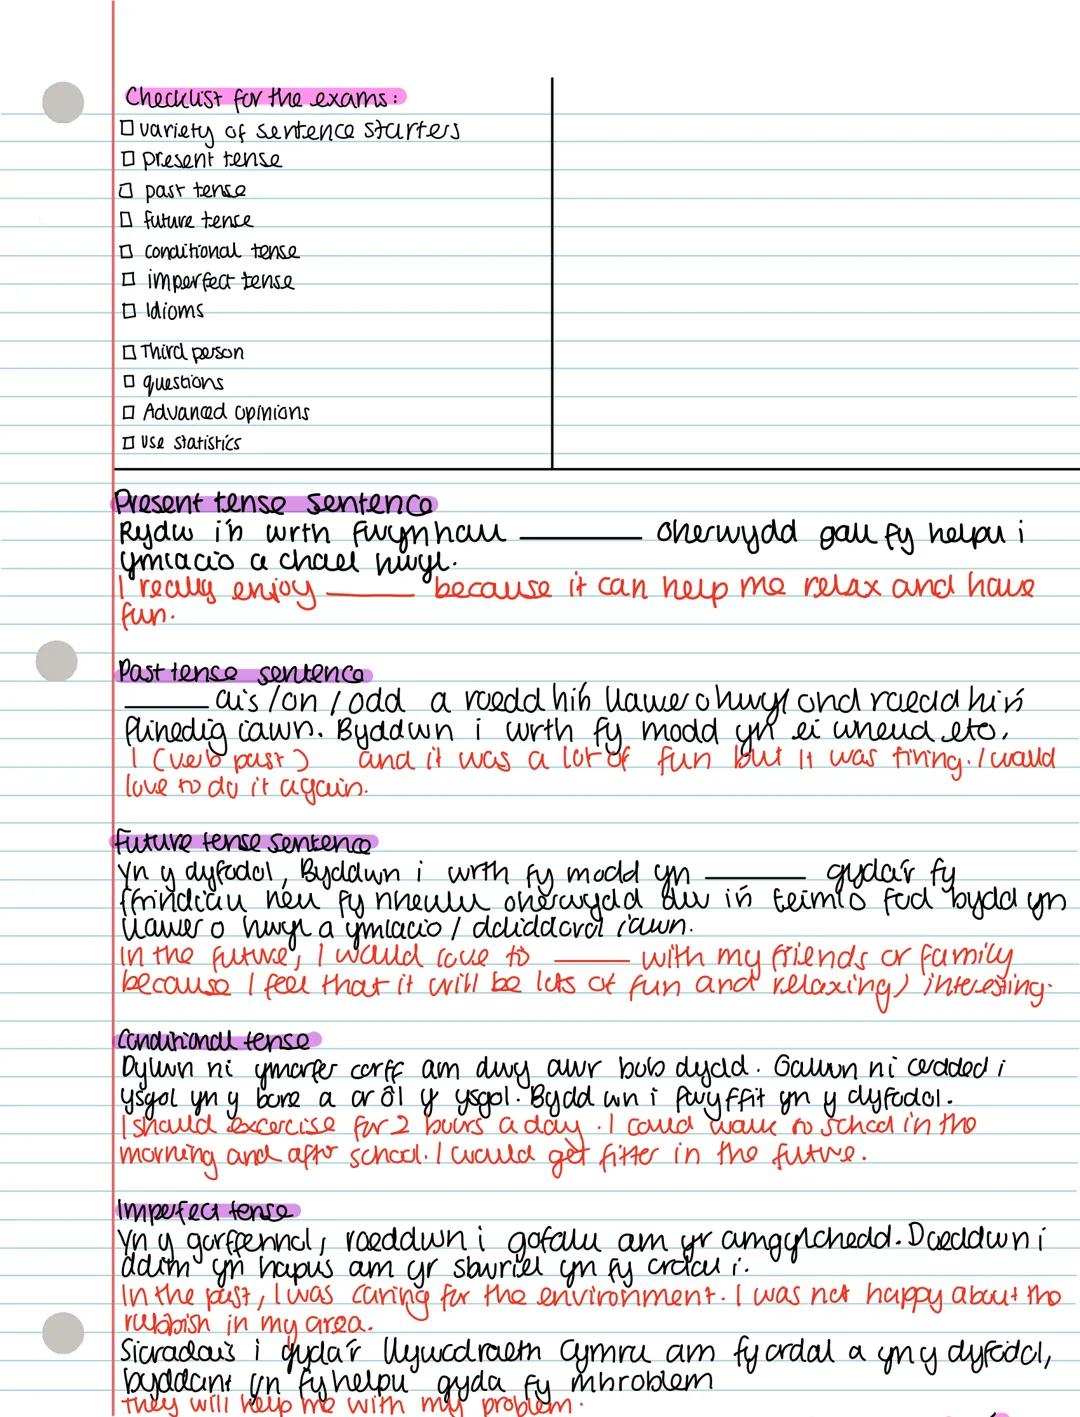 Checklist for the exams:
variety of sentence starters
present tense
past tense
future tence
conditional tense
imperfect tense
Idioms
Third person
questions
Advanced opinions
Use statistics
Present tense sentence
Rydw i'n wrth fwynhau ______ oherwydd gall fy helpu i
ymlacio a chael hwyl.
I really enjoy ______ because it can help me relax and have
fun.
Past tense sentence
______ ais/on/odd a roedd hi'n llawer o hwyl ond roedd hi'n
flinedig iawn. Byddwn i wrth fy modd yn ei wneud eto.
I (verb past) and it was a lot of fun but it was tiring. I would
love to do it again.
Future tense sentence
Yn y dyfodol, Byddwn i wrth fy modd yn ______ gyda'r fy
ffrindiau neu fy nheulu oherwydd dw i'n teimlo fod bydd yn
llawer o hwyl a ymlacio / ddiddorol iawn.
In the future, I would love to ______ with my friends or family
because I feel that it will be lots of fun and relaxing/ interesting.
Conditional tense
Dylwn ni ymarfer corff am dwy awr bob dydd. Gallwn ni cerdded i
ysgol yn y bore a ar ôl y ysgol. Bydd wn i fwy ffit yn y dyfodol.
I should excercise for 2 hours a day. I could walk to school in the
morning and after school. I would get fitter in the future.
Imperfect tense
Yn y gorffennol, roeddwn i gofalu am yr amgylchedd. Doeddwn i
ddim yn hapus am yr sbwriel yn fy ardal i.
In the past, I was caring for the environment. I was not happy about the
rubbish in my area.
Siaradais i gyda'r llywodraeth Cymru am fy ardal a yn y dyfodol,
byddant yn fy helpu gyda fy mhroblem
They will help me with my problem.